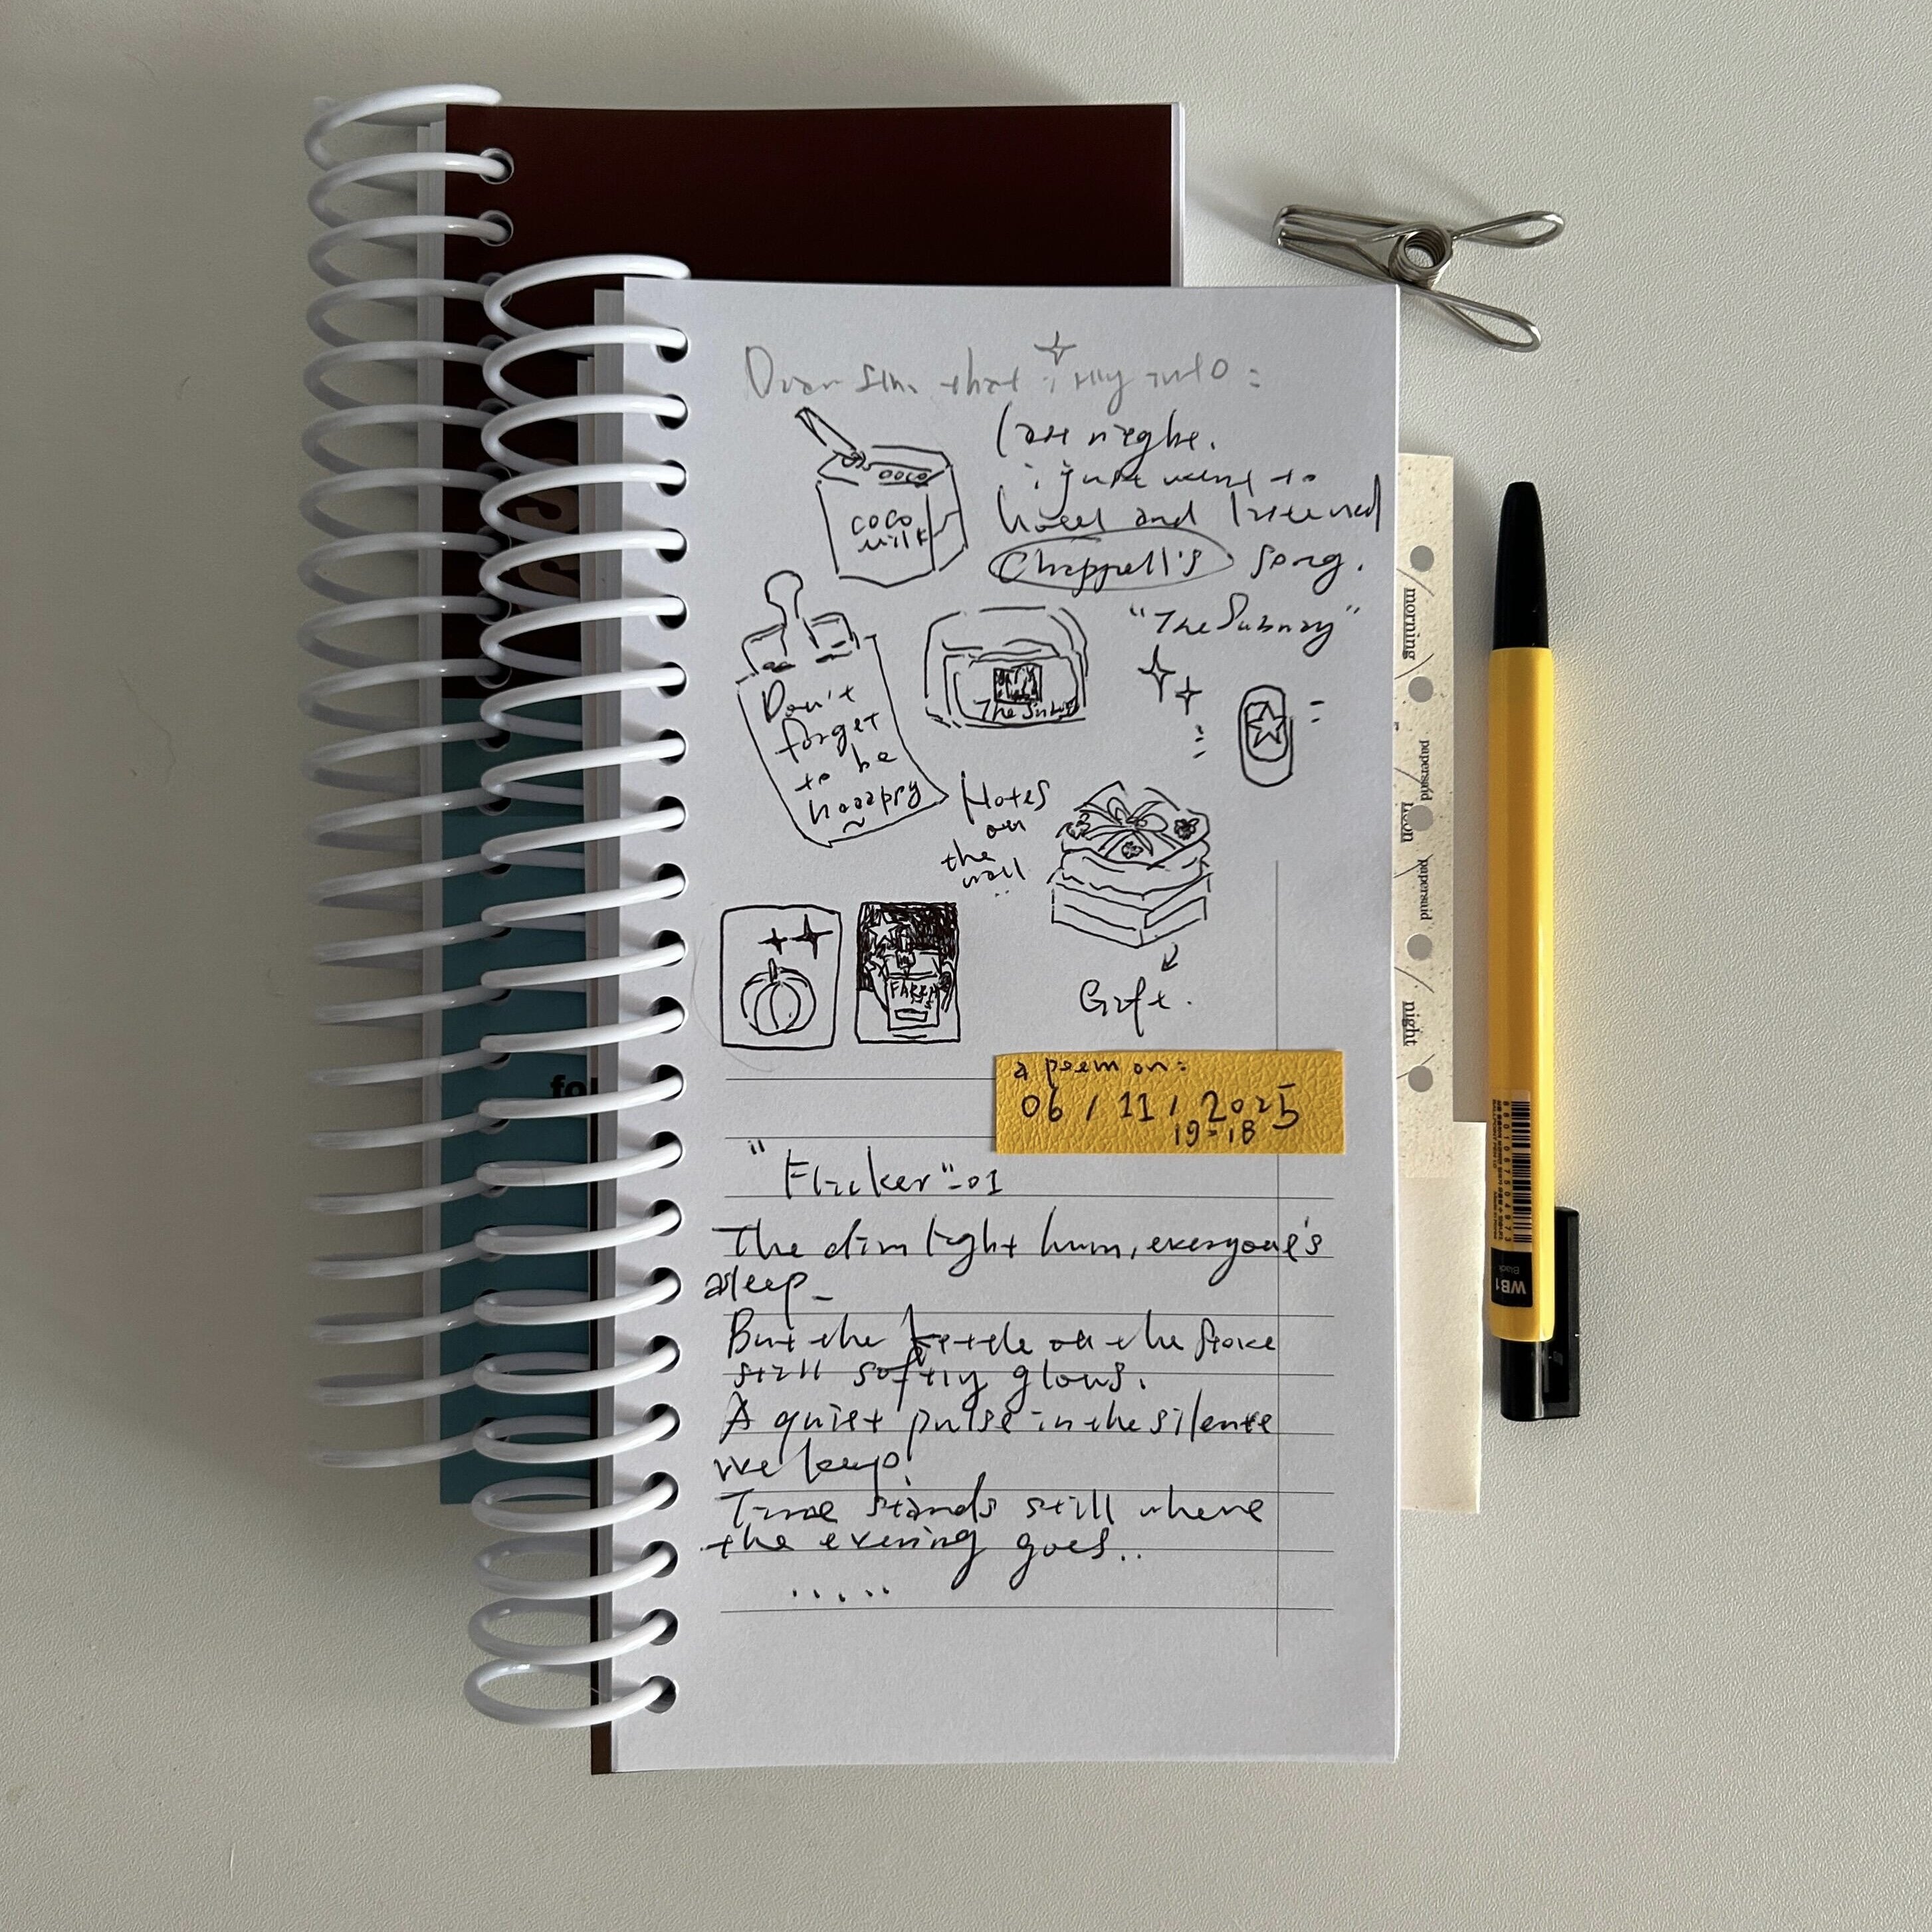 that
Last night.
i just went to
hotel and listened
Chappell's song.
"The Subway"
COCO
COCO
milk
The Subw
Don't
forget
to be
haaappy
~
Notes
on
the
wall
..
Gift.
a poem on:
06 / 11 / 2025
19-18
"Flicker"-01
The dim light hum, everyone's
asleep_
But the kettle on the stove
still softly glows.
A quiet pulse in the silence
we keep.
Time stands still where
the evening goes..
.....
morning
papersaid
noon
papersaid
night
fol
WB1
Black